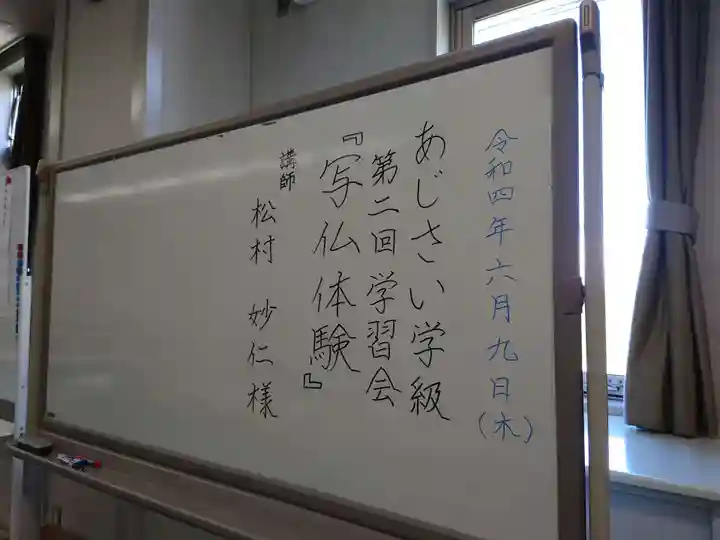 令和四年六月九日(木)
あじさい学級
第二回学習会
『写仏体験』
講師
松村 妙仁様